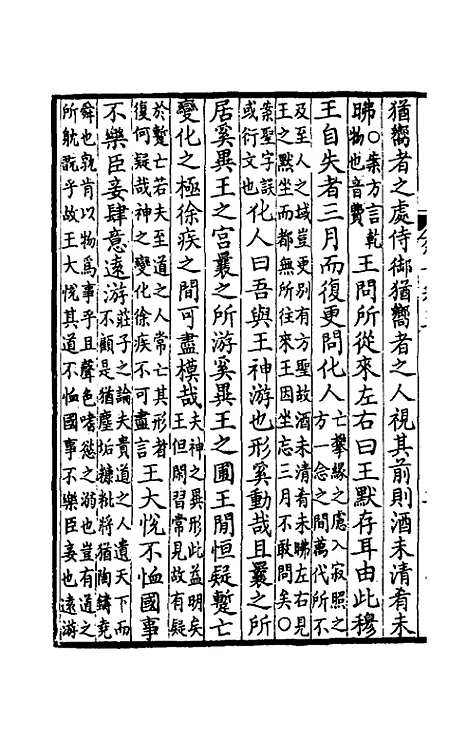 猶嚮者之處侍御猶嚮者之人視其前則酒未清肴未
昲○案方言乾物也音費王問所從來左右曰王默存耳由此穆
王自失者三月而復更問化人亡攀緣之慮入寂照之方一念之間萬代所不
及至人之域豈更別有方聖故酒未清肴未昲左右見
王之默坐而都無所往來王因坐忘三月不敢問矣○
案聖字誤或衍文也化人曰吾與王神游也形奚動哉且曩之所
居奚異王之宮曩之所游奚異王之圃王閒恒疑蹔亡
變化之極徐疾之間可盡模哉夫神之異形此益明矣王但閑習常見故有疑
於蹔亡若夫至道之人常亡其形者復何疑哉神之變化徐疾不可盡言王大悅不恤國事
不樂臣妾肆意遠游莊子之論夫貴道之人遺天下而不顧是猶塵垢糠粃將猶陶鑄堯
舜也孰肯以物爲事乎且聲色嗜慾之溺也豈有道之
所躭翫乎故王大悅其道不恤國事不樂臣妾也遠游